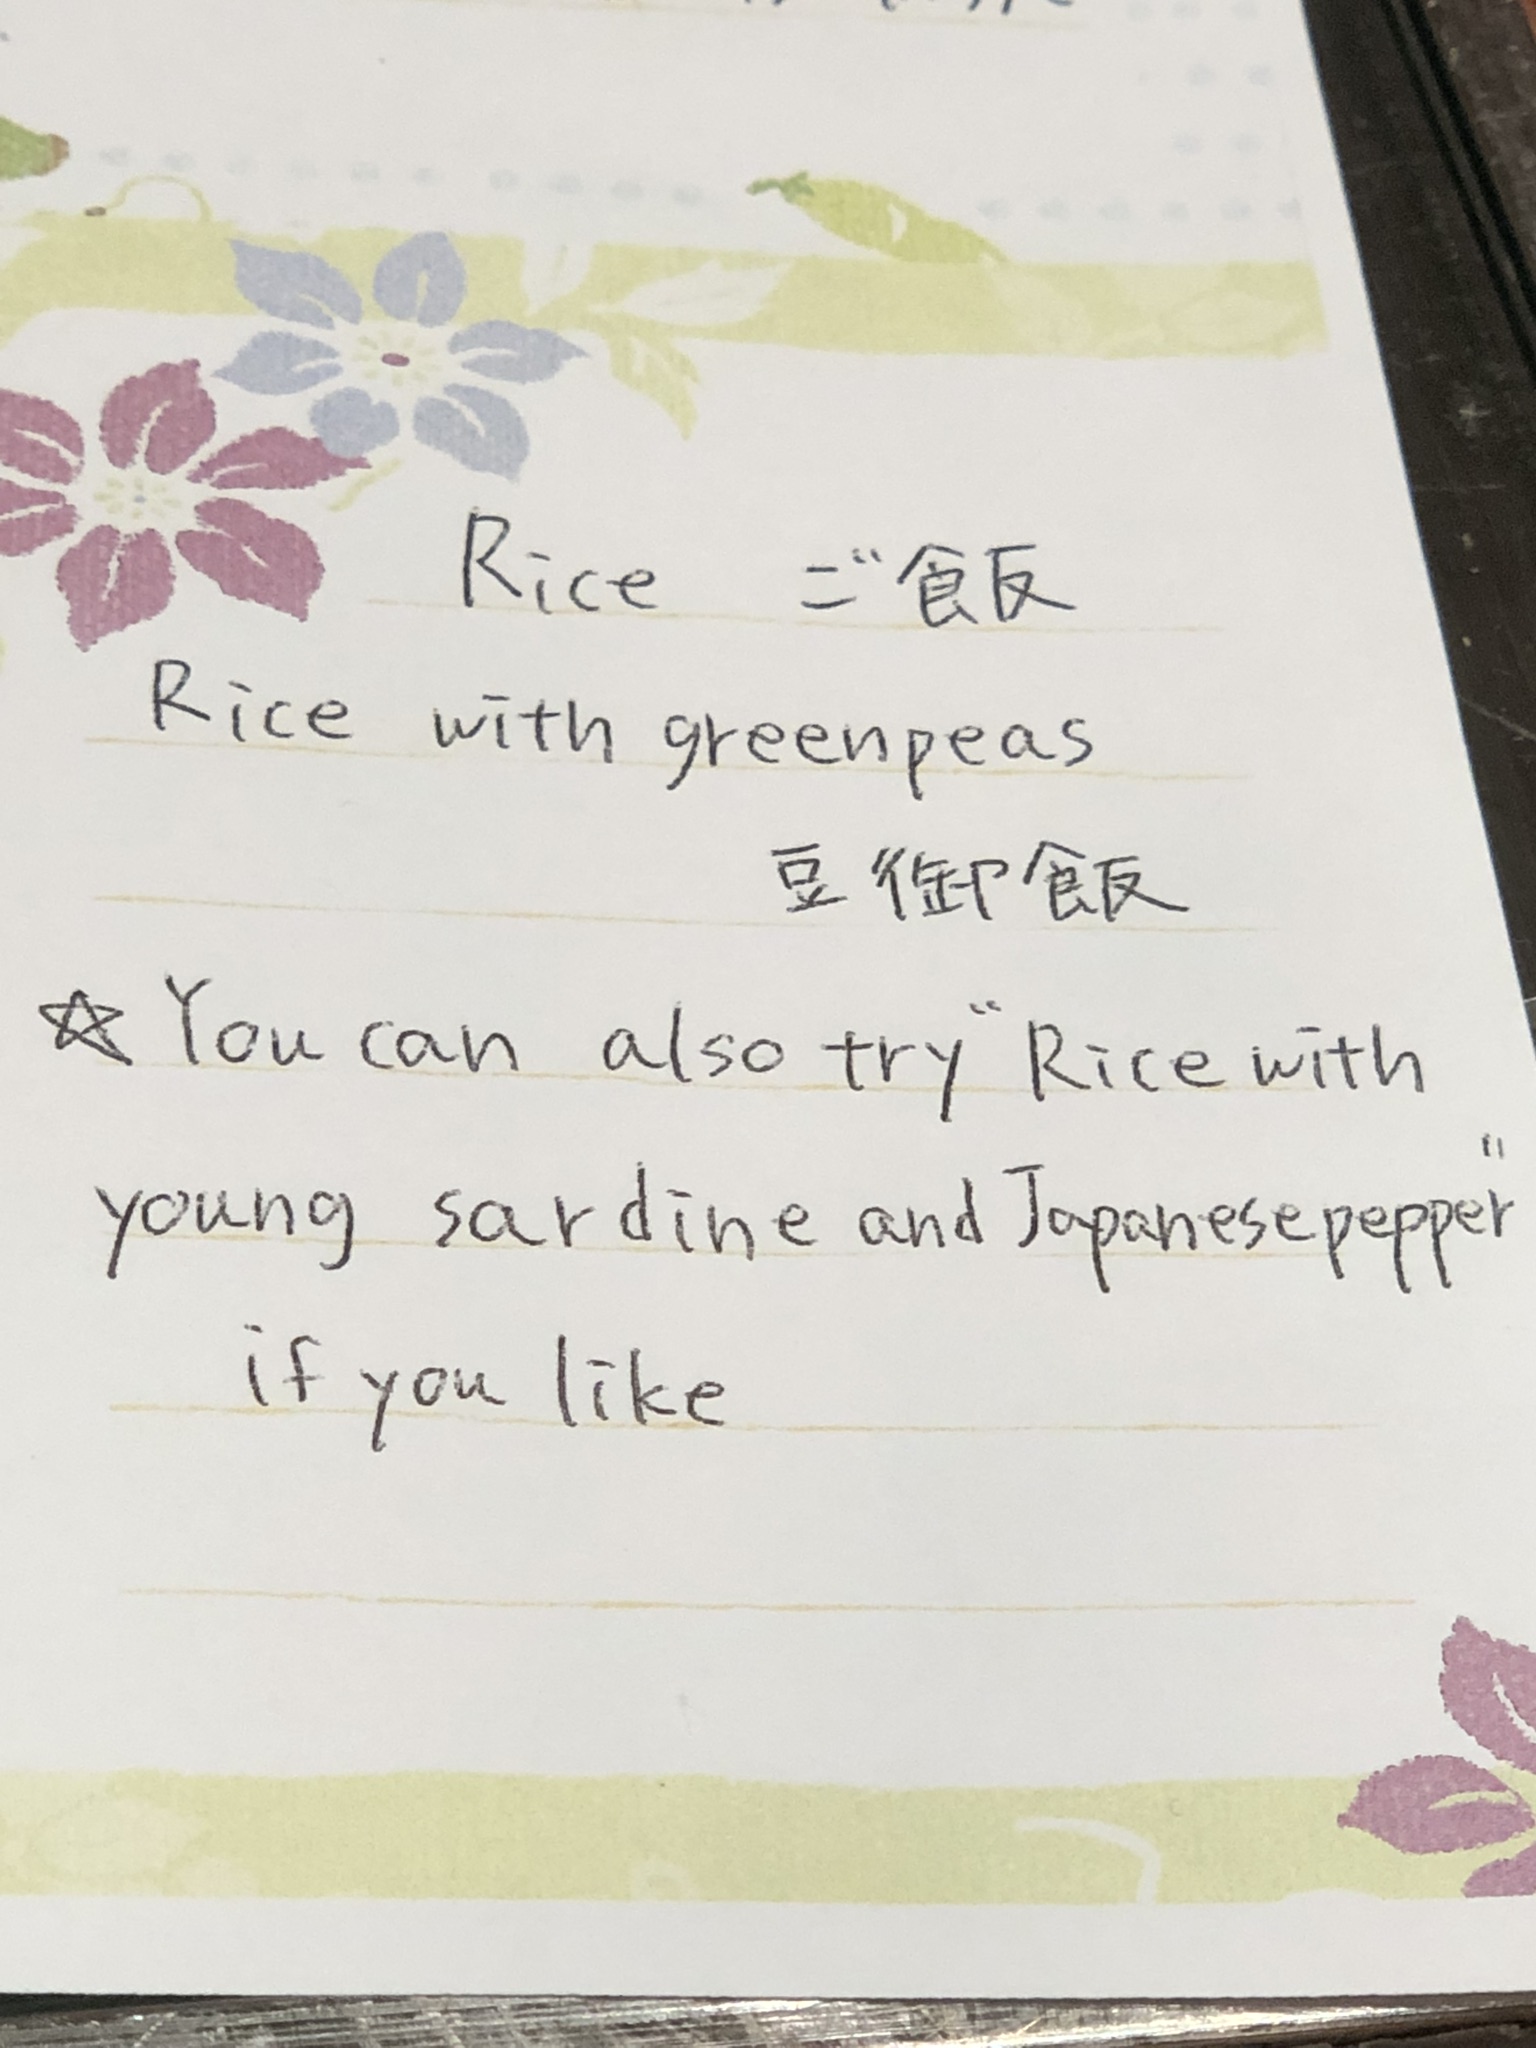 Rice ご飯
Rice with greenpeas
豆御飯
☆You can also try "Rice with
young sardine and Japanesepepper"
if you like